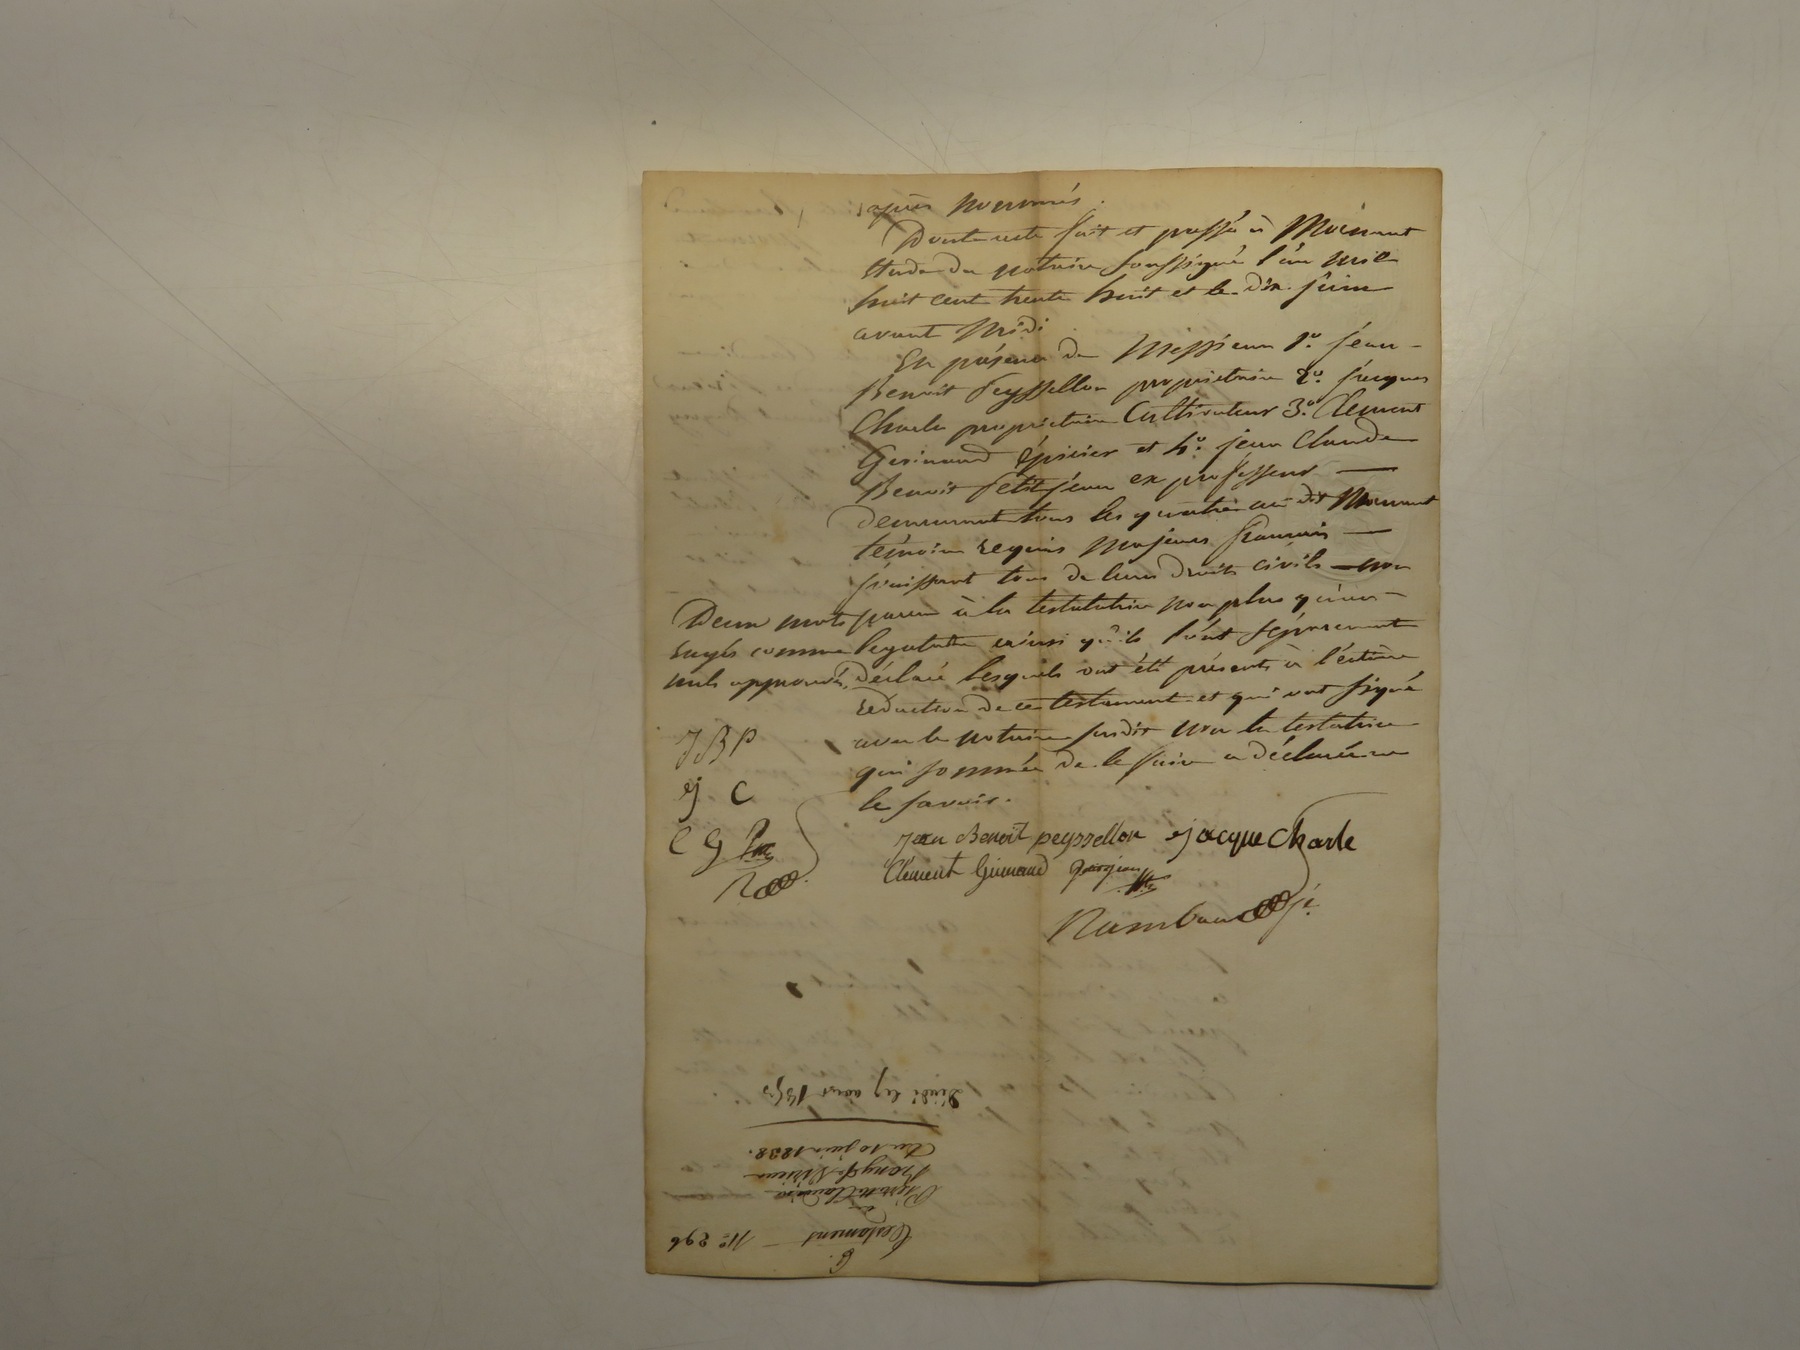 après nommés.
Dont acte fait et passé à Mornant
étude du notaire soussigné l'an mil
huit cent trente huit et le dix juin
avant midi
En présence de Messieurs 1º. jean-
Benoit Peyssellon propriétaire 2º. jacques
Charle propriétaire Cultivateur 3º. Clement
Guinand épicier et 4º. jean Claude
Benoit Petitjean ex professeur —
demeurant tous les quatre au dit Mornant
témoins requis majeurs français —
jouissant tous de leurs droits civils — non
parens à la testatrice non plus qu'aux
légataires ainsi qu'ils l'ont séparement
déclaré lesquels ont été présents à l'entière
rédaction de ce testament et qui ont signé
avec le notaire susdit non la testatrice
qui sommée de le faire a déclaré ne
le savoir.
Deux mots
rayés comme
nuls approuvés.
J B P
j C
C G
jean Benoit peyssellon jacque Charle
Clement Guinand
Rambaud
Testament Nº 296
à
Pierrette Claudine
Du 10 juin 1838.